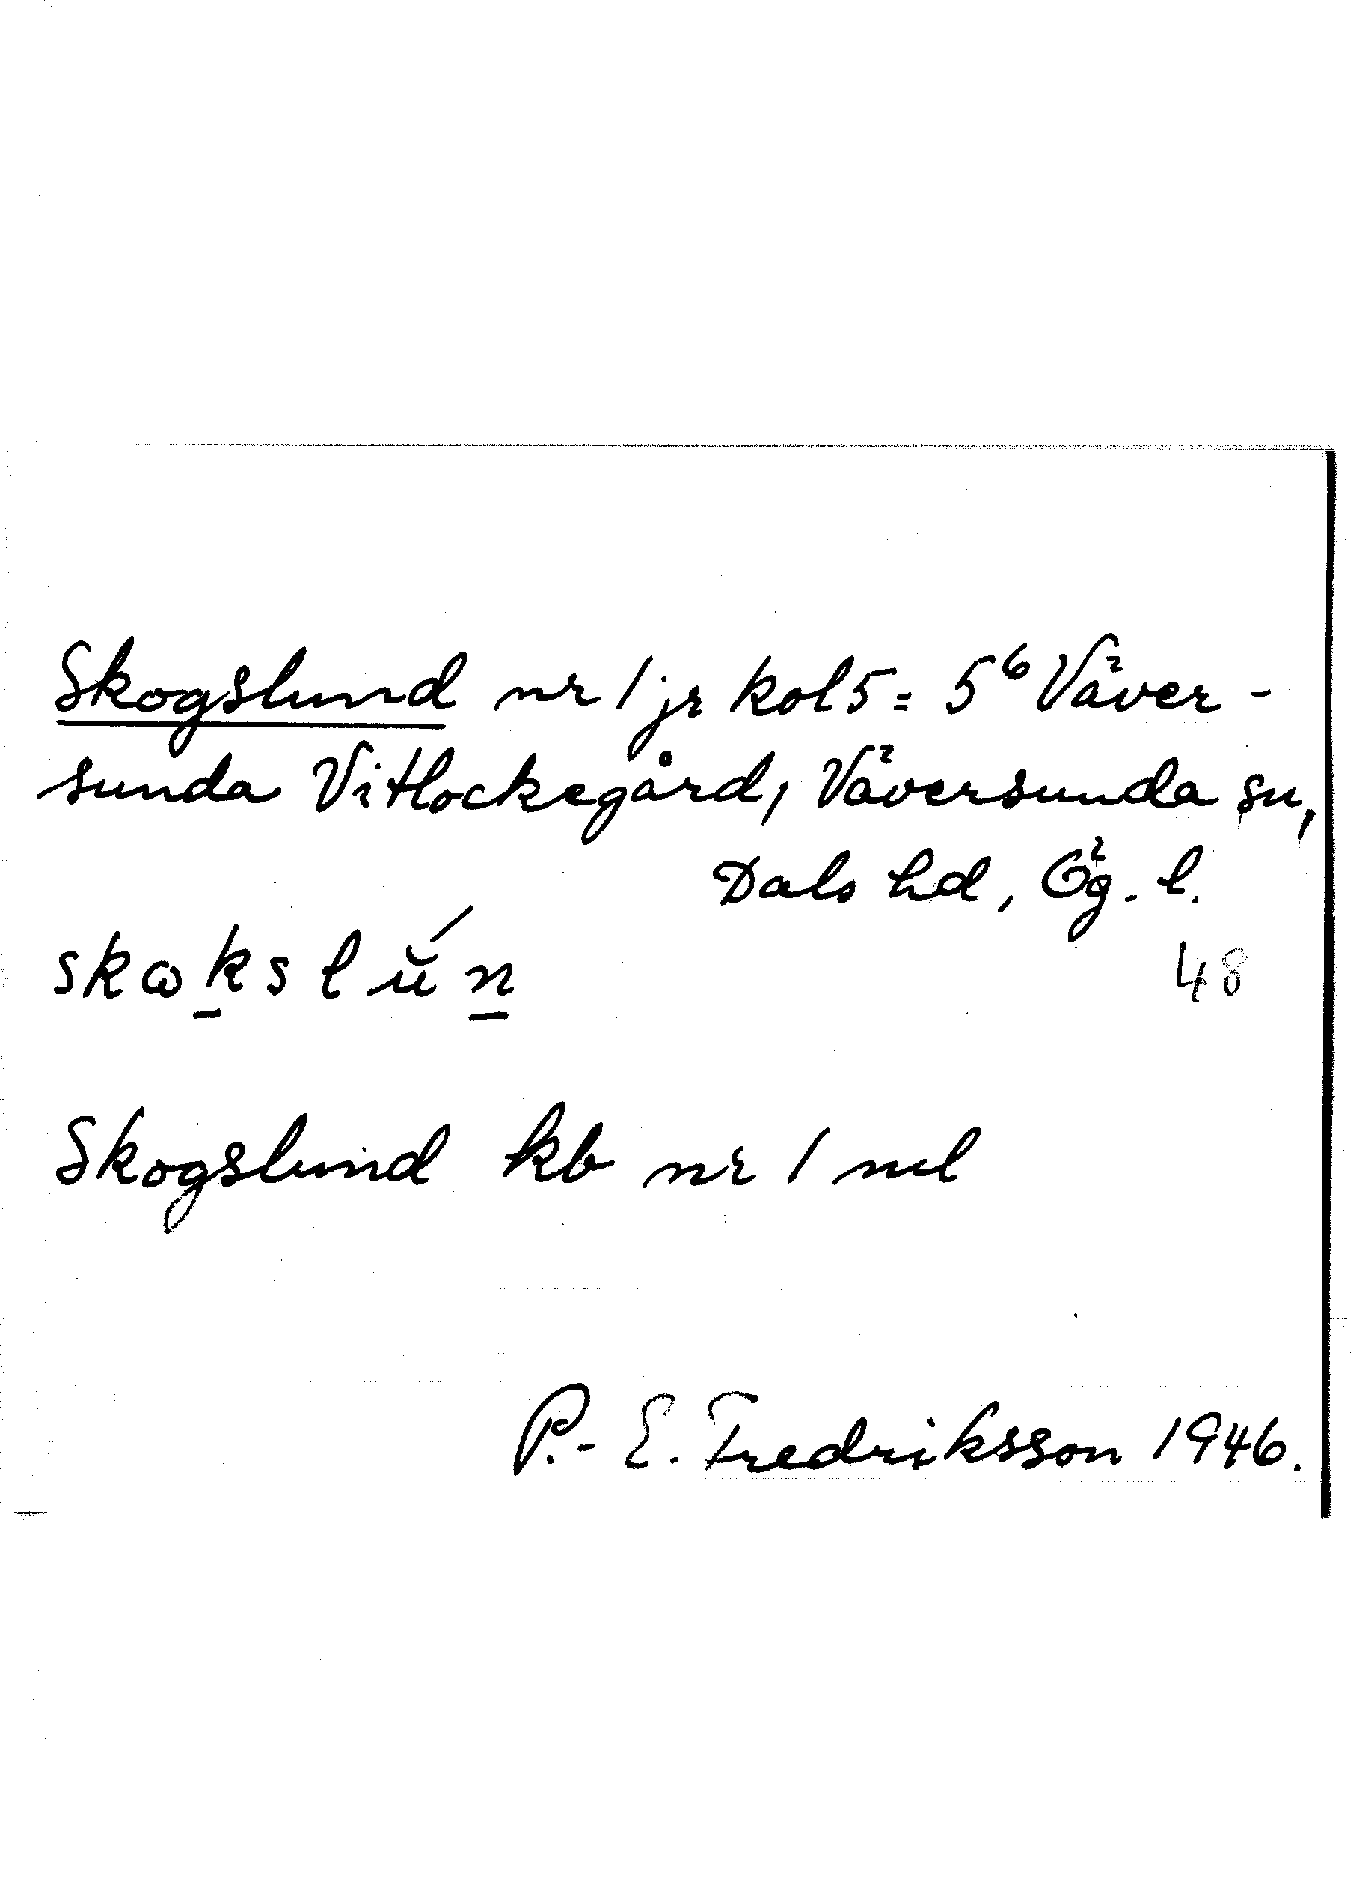 Skogslund nr 1 jr kol 5 = 5⁶ Väver-
sunda Vitlockegård, Väversunda sn,
Dals hd, Ög. l.
skωkslún
48
Skogslund kb nr 1 ml
P.-E. Fredriksson 1946.